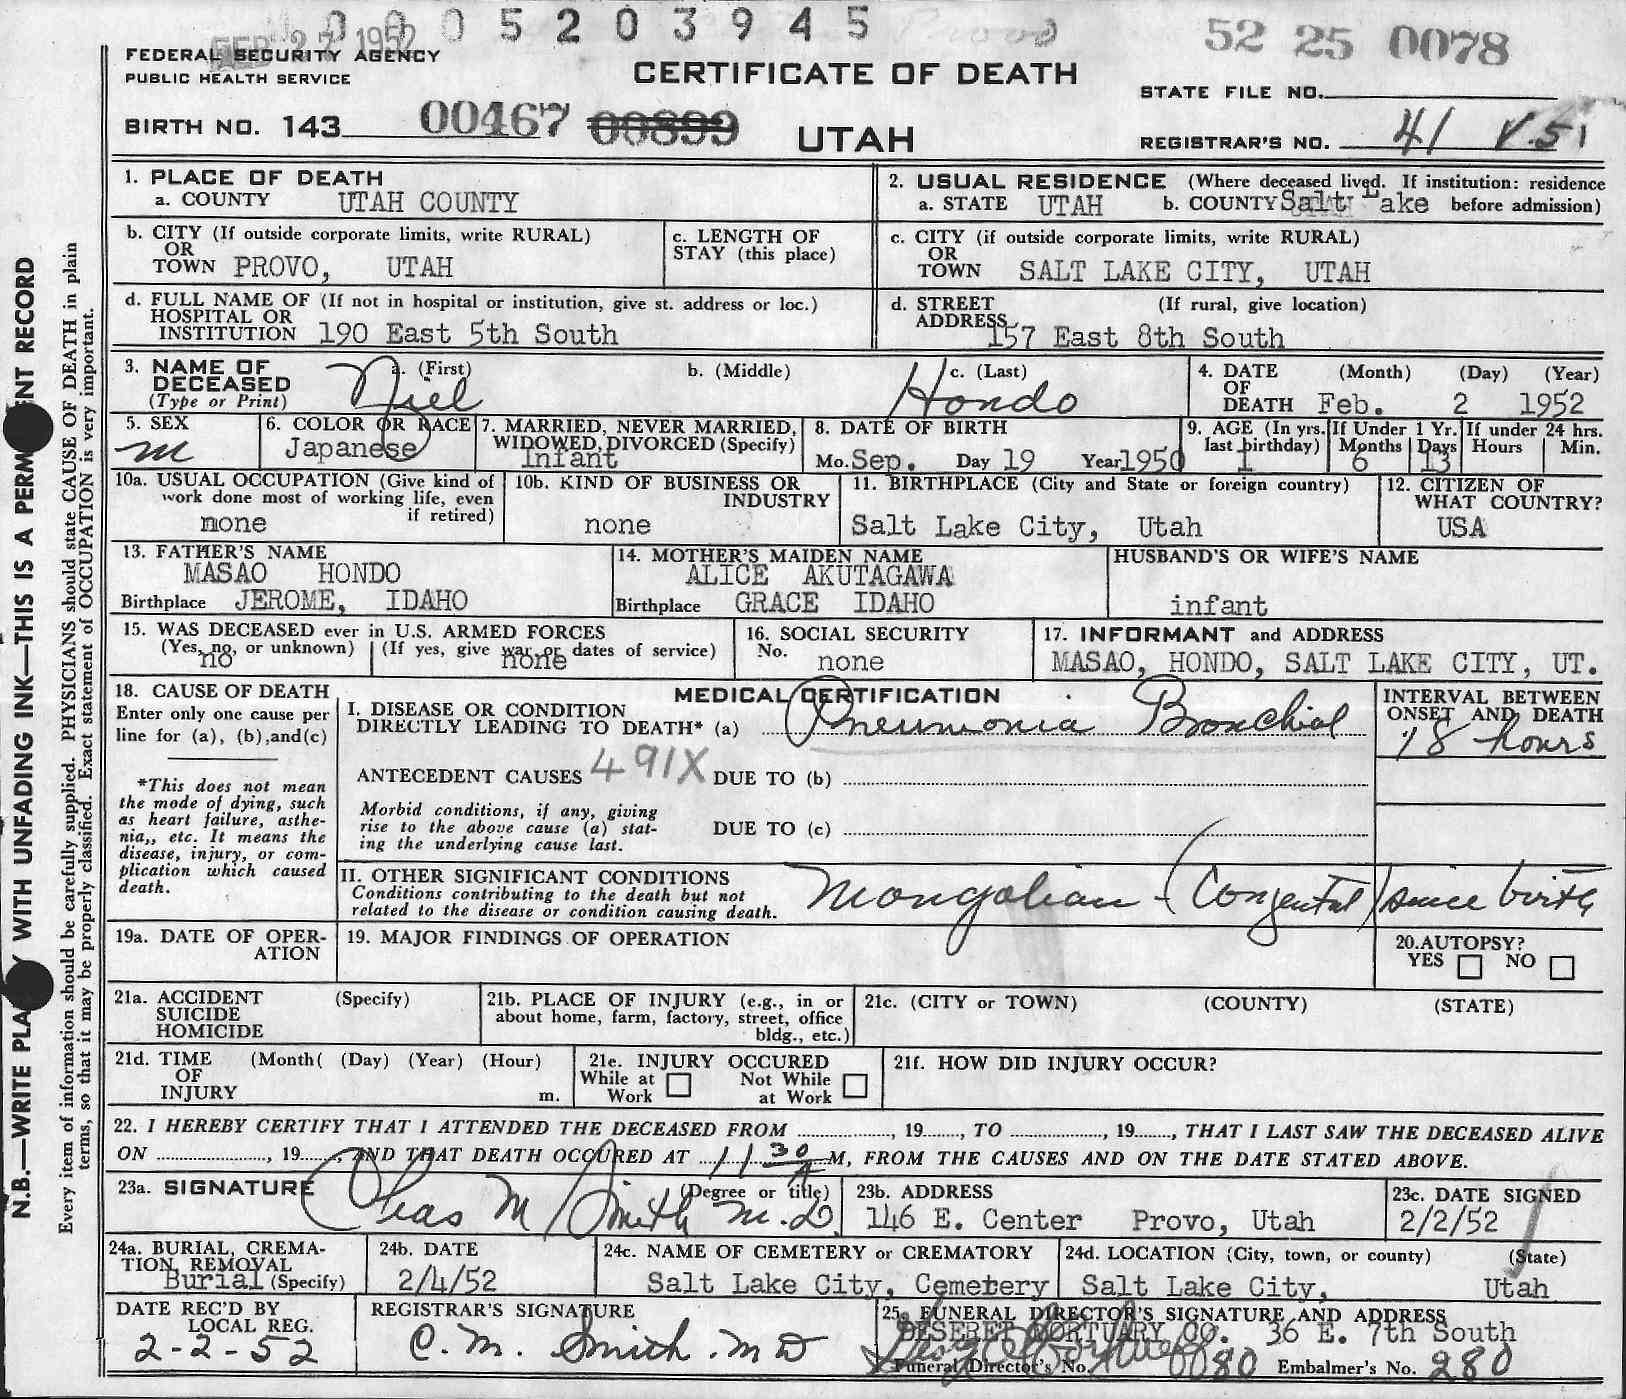 0005203945
FEB 27 1952
52 25 0078
FEDERAL SECURITY AGENCY
PUBLIC HEALTH SERVICE
CERTIFICATE OF DEATH
STATE FILE NO.
BIRTH NO. 143 00467 00899
UTAH
REGISTRAR'S NO. 41 V.51
1. PLACE OF DEATH
a. COUNTY UTAH COUNTY
2. USUAL RESIDENCE (Where deceased lived. If institution: residence
a. STATE UTAH b. COUNTY Salt Lake before admission)
b. CITY (If outside corporate limits, write RURAL)
OR
TOWN PROVO, UTAH
c. LENGTH OF
STAY (this place)
c. CITY (if outside corporate limits, write RURAL)
OR
TOWN SALT LAKE CITY, UTAH
d. FULL NAME OF (If not in hospital or institution, give st. address or loc.)
HOSPITAL OR
INSTITUTION 190 East 5th South
d. STREET (If rural, give location)
ADDRESS 157 East 8th South
3. NAME OF
DECEASED
(Type or Print)
a. (First) b. (Middle) c. (Last)
Niel Hondo
4. DATE (Month) (Day) (Year)
OF
DEATH Feb. 2 1952
5. SEX
m
6. COLOR OR RACE
Japanese
7. MARRIED, NEVER MARRIED,
WIDOWED, DIVORCED (Specify)
Infant
8. DATE OF BIRTH
Mo. Sep. Day 19 Year 1950
9. AGE (In yrs. If Under 1 Yr. If under 24 hrs.
last birthday) Months Days Hours Min.
1 6 13
10a. USUAL OCCUPATION (Give kind of
work done most of working life, even
if retired)
none
10b. KIND OF BUSINESS OR
INDUSTRY
none
11. BIRTHPLACE (City and State or foreign country)
Salt Lake City, Utah
12. CITIZEN OF
WHAT COUNTRY?
USA
13. FATHER'S NAME
MASAO HONDO
Birthplace JEROME, IDAHO
14. MOTHER'S MAIDEN NAME
ALICE AKUTAGAWA
Birthplace GRACE IDAHO
HUSBAND'S OR WIFE'S NAME
infant
15. WAS DECEASED ever in U.S. ARMED FORCES
(Yes, no, or unknown) (If yes, give war or dates of service)
no none
16. SOCIAL SECURITY
No. none
17. INFORMANT and ADDRESS
MASAO, HONDO, SALT LAKE CITY, UT.
18. CAUSE OF DEATH
Enter only one cause per
line for (a), (b), and (c)
*This does not mean
the mode of dying, such
as heart failure, asthe-
nia,, etc. It means the
disease, injury, or com-
plication which caused
death.
MEDICAL CERTIFICATION
I. DISEASE OR CONDITION
DIRECTLY LEADING TO DEATH* (a) Pneumonia Bronchial
INTERVAL BETWEEN
ONSET AND DEATH
18 hours
ANTECEDENT CAUSES 491X DUE TO (b)
Morbid conditions, if any, giving
rise to the above cause (a) stat-
ing the underlying cause last.
DUE TO (c)
II. OTHER SIGNIFICANT CONDITIONS
Conditions contributing to the death but not
related to the disease or condition causing death.
Mongolian - (Congental) since birth
19a. DATE OF OPER-
ATION
19. MAJOR FINDINGS OF OPERATION
20. AUTOPSY?
YES NO
21a. ACCIDENT (Specify)
SUICIDE
HOMICIDE
21b. PLACE OF INJURY (e.g., in or
about home, farm, factory, street, office
bldg., etc.)
21c. (CITY or TOWN) (COUNTY) (STATE)
21d. TIME (Month( (Day) (Year) (Hour)
OF
INJURY m.
21e. INJURY OCCURED
While at Work Not While at Work
21f. HOW DID INJURY OCCUR?
22. I HEREBY CERTIFY THAT I ATTENDED THE DECEASED FROM , 19 , TO , 19 , THAT I LAST SAW THE DECEASED ALIVE
ON , 19 , AND THAT DEATH OCCURED AT 11 30 A M, FROM THE CAUSES AND ON THE DATE STATED ABOVE.
23a. SIGNATURE (Degree or title)
Chas M Smith M.D.
23b. ADDRESS
146 E. Center Provo, Utah
23c. DATE SIGNED
2/2/52
24a. BURIAL, CREMA-
TION REMOVAL
Burial (Specify)
24b. DATE
2/4/52
24c. NAME OF CEMETERY or CREMATORY
Salt Lake City, Cemetery
24d. LOCATION (City, town, or county) (State)
Salt Lake City, Utah
DATE REC'D BY
LOCAL REG.
2-2-52
REGISTRAR'S SIGNATURE
C. M. Smith. MD
25. FUNERAL DIRECTOR'S SIGNATURE AND ADDRESS
DESERET MORTUARY CO. 36 E. 7th South
Funeral Director's No. 80 Embalmer's No. 280
N.B.—WRITE PLAINLY WITH UNFADING INK—THIS IS A PERMANENT RECORD
Every item of information should be carefully supplied. PHYSICIANS should state CAUSE OF DEATH in plain
terms, so that it may be properly classified. Exact statement of OCCUPATION is very important.